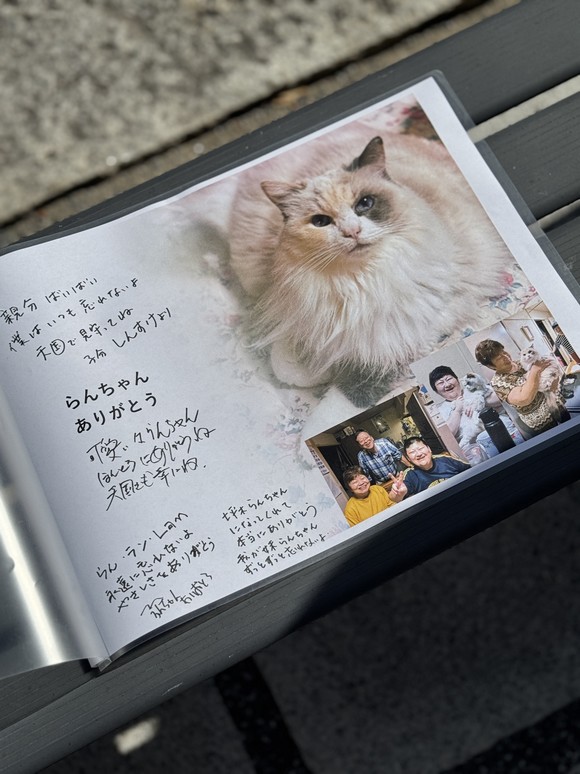 親分 ばいばい
僕はいつも忘れないよ
天国で見守ってね
子分 しんすけより
らんちゃん
ありがとう
らんちゃん
ほんとうにありがとうね
天国でも幸にね.
らん・ラン・Lan
永遠に忘れないよ
やさしさをありがとう
らんちゃん
になってくれて
本当にありがとう
我が妹らんちゃん
ずっとずっと忘れないよ